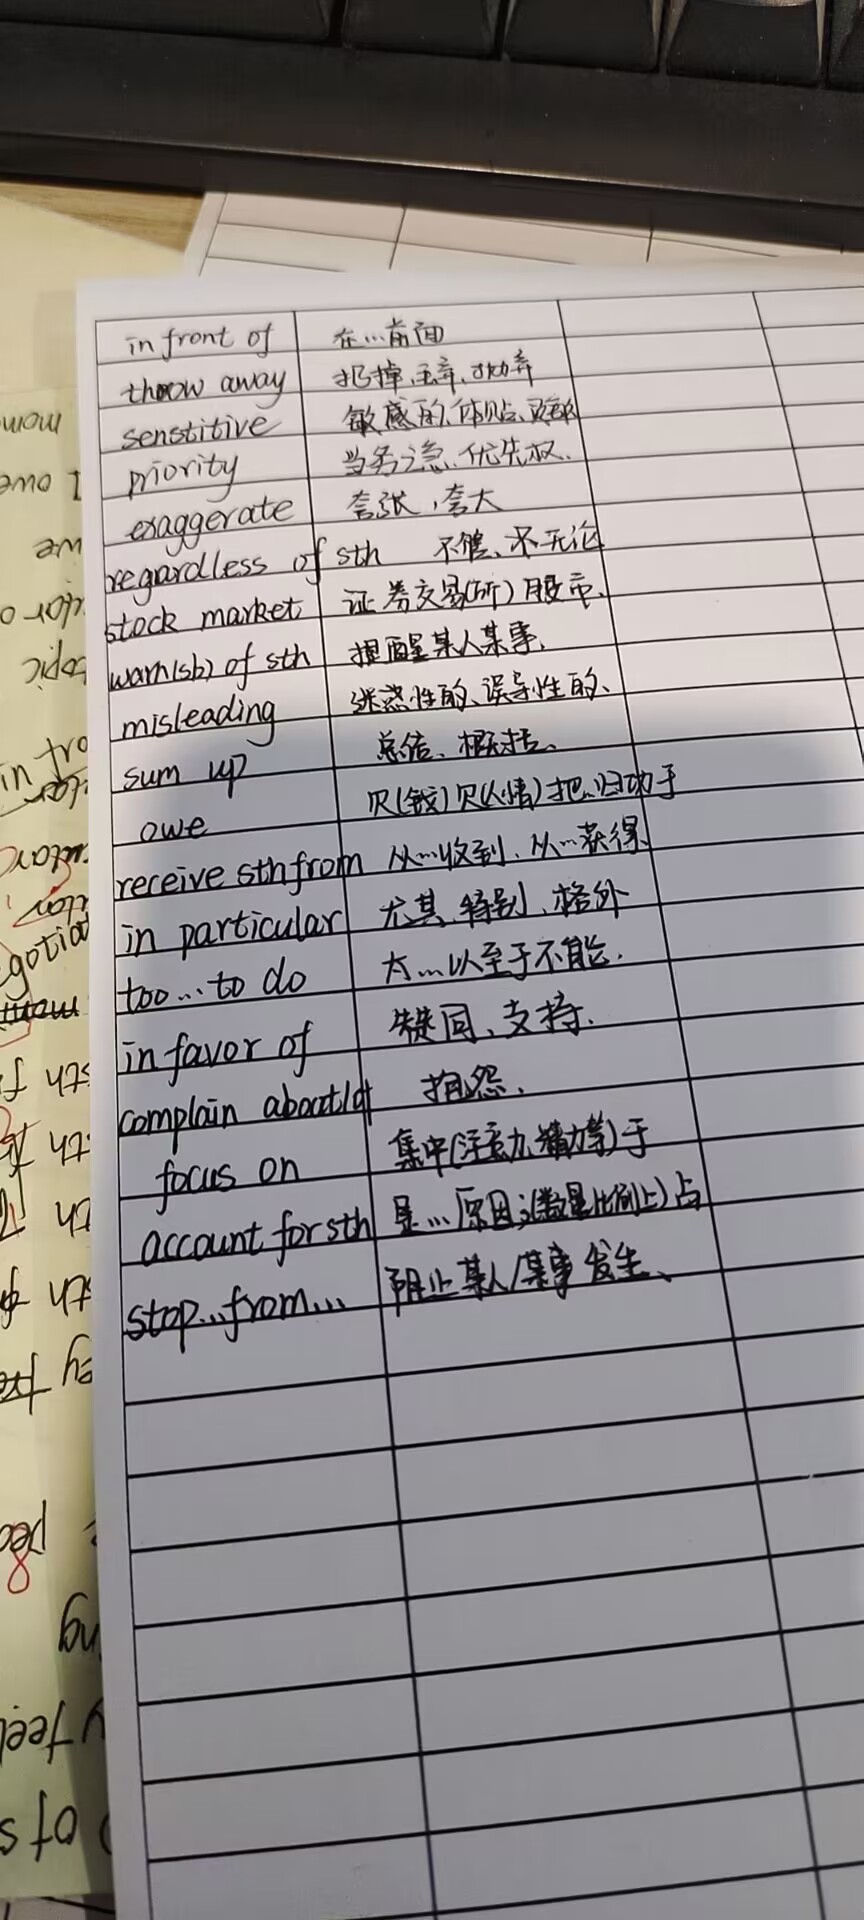 in front of 在...前面
throw away 扔掉、丢弃、抛弃
senstitive 敏感的、体贴、
priority 当务之急、优先权、
exaggerate 夸张，夸大
regardless of sth 不管、不无论
stock market 证券交易(所)股市、
warn(sb) of sth 提醒某人某事、
misleading 迷惑性的、误导性的、
sum up 总结、概括、
owe 欠(钱)欠(人情)把..归功于
receive sth from 从...收到、从...获得、
in particular 尤其、特别、格外
too...to do 太...以至于不能、
in favor of 赞同、支持、
complain about/at 抱怨、
focus on 集中(注意力、精力等)于
account for sth 是...原因;(数量比例上)占
stop...from... 阻止某人/某事发生、